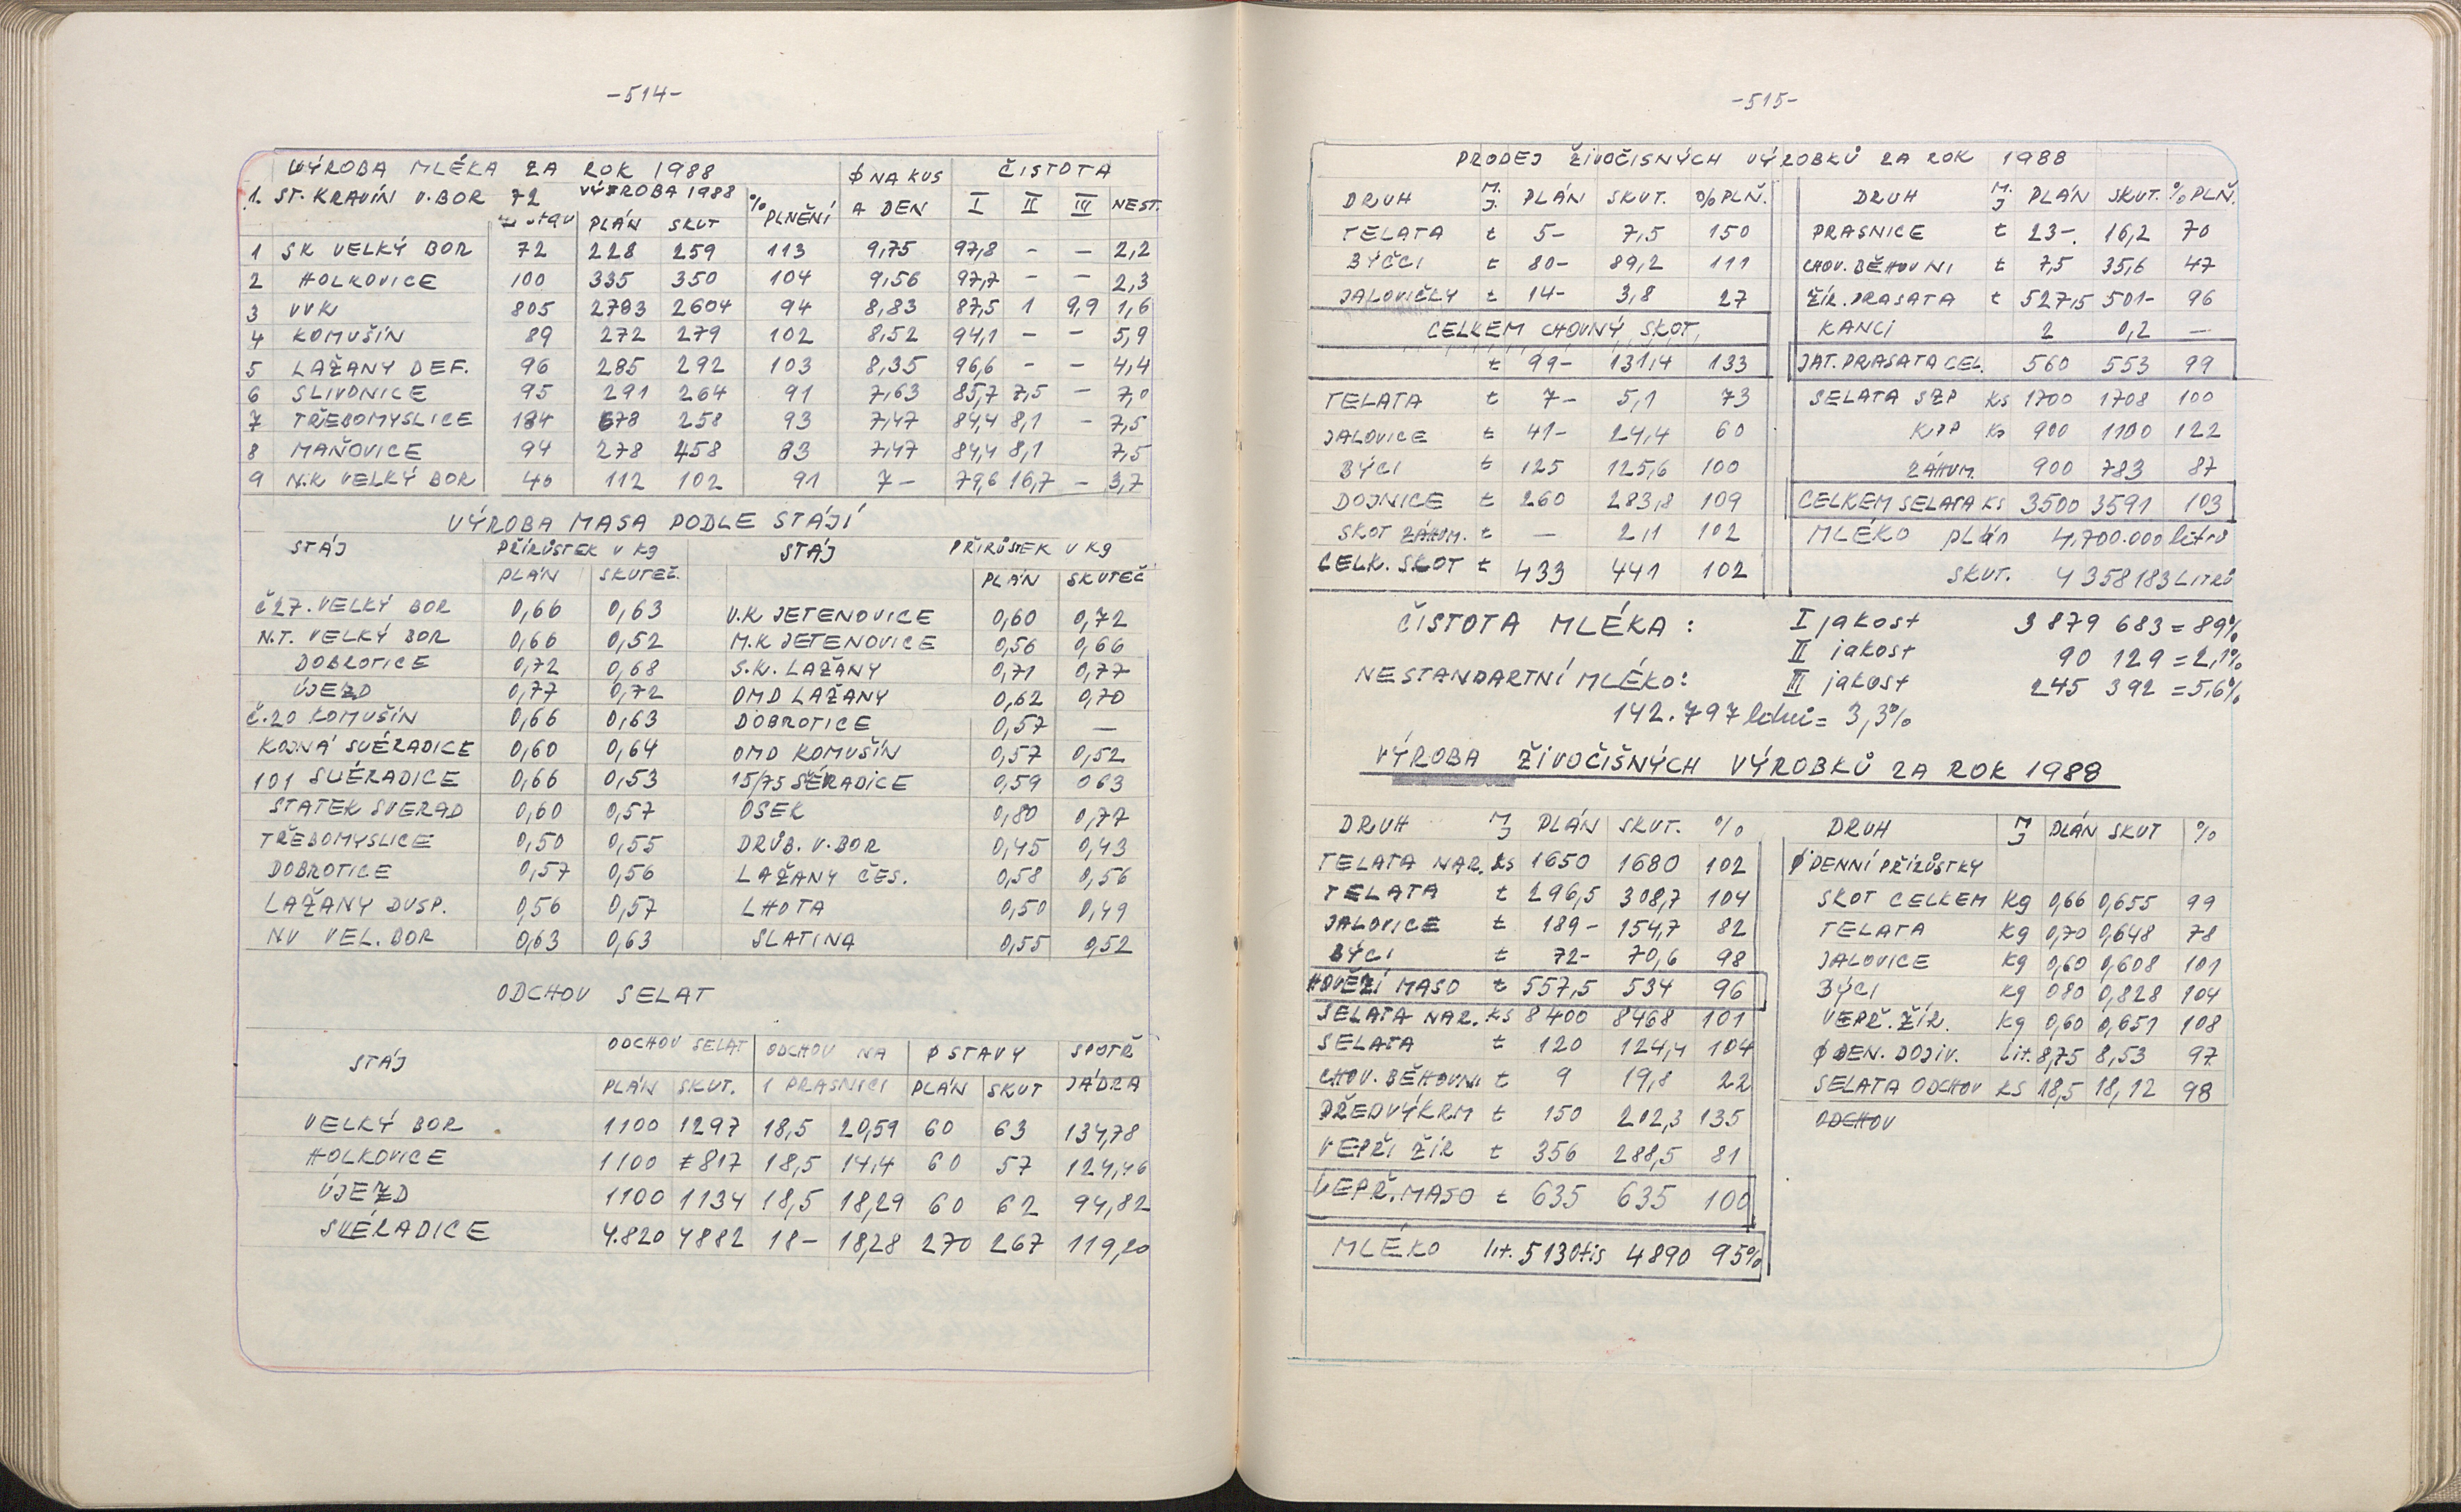 -514-
VÝROBA MLÉKA ZA ROK 1988 Ø NA KUS ČISTOTA
1. ST. KRAVÍN V. BOR 72 VÝROBA 1988 % A DEN I II III NEST.
PLÁN SKUT PLNĚNÍ
1 SK VELKÝ BOR 72 228 259 113 9,75 97,8 - - 2,2
2 HOLKOVICE 100 335 350 104 9,56 97,7 - - 2,3
3 VVK 805 2783 2604 94 8,83 87,5 1 9,9 1,6
4 KOMUŠÍN 89 272 279 102 8,52 94,1 - - 5,9
5 LAŽANY DEF. 96 285 292 103 8,35 96,6 - - 4,4
6 SLIVONICE 95 291 264 91 7,63 85,7 7,5 - 7,0
7 TŘEBOMYSLICE 184 678 258 93 7,47 84,4 8,1 - 7,5
8 MAŇOVICE 94 278 458 83 7,47 84,4 8,1 7,5
9 N.K VELKÝ BOR 40 112 102 91 7- 79,6 16,7 - 3,7
VÝROBA MASA PODLE STÁJÍ
STÁJ PŘÍRŮSTEK V Kg STÁJ PŘIRŮSTEK V Kg
PLÁN SKUTEČ. PLÁN SKUTEČ
Č27. VELKÝ BOR 0,66 0,63 V.K JETENOVICE 0,60 0,72
N.T. VELKÝ BOR 0,66 0,52 M.K JETENOVICE 0,56 0,66
DOBROTICE 0,72 0,68 S.K. LAŽANY 0,71 0,77
ÚJEZD 0,77 0,72 OMD LAŽANY 0,62 0,70
Č.20 KOMUŠÍN 0,66 0,63 DOBROTICE 0,57 —
KOJNÁ SVÉRADICE 0,60 0,64 OMD KOMUŠÍN 0,57 0,52
101 SVÉRADICE 0,66 0,53 15/75 SÉRADICE 0,59 063
STATEK SVERAD 0,60 0,57 OSEK 0,80 0,77
TŘEBOMYSLICE 0,50 0,55 DRŮB. V. BOR 0,45 0,43
DOBROTICE 0,57 0,56 LAŽANY ČES. 0,58 0,56
LAŽANY DVSP. 0,56 0,57 LHOTA 0,50 0,49
NV VEL. BOR 0,63 0,63 SLATINA 0,55 0,52
ODCHOV SELAT
STÁJ ODCHOV SELAT ODCHOV NA Ø STAVY SPOTŘ
PLÁN SKUT. 1 PRASNICI PLÁN SKUT JÁDRA
VELKÝ BOR 1100 1297 18,5 20,59 60 63 134,78
HOLKOVICE 1100 817 18,5 14,4 60 57 124,46
ÚJEZD 1100 1134 18,5 18,29 60 62 94,82
SVÉRADICE 4.820 4882 18- 18,28 270 267 119,20
-515-
PRODEJ ŽIVOČIŠNÝCH VÝROBKŮ ZA ROK 1988
DRUH M.J. PLÁN SKUT. % PLŇ. DRUH M.J PLÁN SKUT. % PLŇ.
TELATA t 5- 7,5 150 PRASNICE t 23-. 16,2 70
BÝČCI t 80- 89,2 111 CHOV. BĚHOVNI t 7,5 35,6 47
JALOVIČKY t 14- 3,8 27 ŽÍR. PRASATA t 527,5 501- 96
CELKEM CHOVNÝ SKOT KANCI 2 0,2 —
t 99- 131,4 133 JAT. PRASATA CEL. 560 553 99
TELATA t 7- 5,1 73 SELATA SZP KS 1700 1708 100
JALOVICE t 41- 24,4 60 KJP Ks 900 1100 122
BÝCI t 125 125,6 100 ZÁHUM. 900 783 87
DOJNICE t 260 283,8 109 CELKEM SELATA KS 3500 3591 103
SKOT ZÁHUM. t — 2,1 102 MLÉKO plán 4,700.000 litrů
CELK. SKOT t 433 441 102 SKUT. 4 358 183 LITRŮ
ČISTOTA MLÉKA: I jakost 3 879 683 = 89%
II jakost 90 129 = 2,1%
NESTANDARTNÍ MLÉKO: III jakost 245 392 = 5,6%
142.797 litrů = 3,3%
VÝROBA ŽIVOČIŠNÝCH VÝROBKŮ ZA ROK 1988
DRUH MJ PLÁN SKUT. % DRUH MJ PLÁN SKUT %
TELATA NAR. ks 1650 1680 102 Ø DENNÍ PŘÍRŮSTKY
TELATA t 296,5 308,7 104 SKOT CELKEM Kg 0,66 0,655 99
JALOVICE t 189- 154,7 82 TELATA Kg 0,70 0,648 78
BÝCI t 72- 70,6 98 JALOVICE Kg 0,60 0,608 101
HOVĚZÍ MASO t 557,5 534 96 BÝCI Kg 080 0,828 104
SELATA NAR. KS 8400 8468 101 VEPŘ. ŽÍR. Kg 0,60 0,651 108
SELATA t 120 124,4 104 Ø DEN. DOJIV. Lit. 8,75 8,53 97
CHOV. BĚHOVNI t 9 19,8 22 SELATA ODCHOV KS 18,5 18,12 98
PŘEDVÝKRM t 150 202,3 135 ODCHOV
VEPŘI ŽÍR t 356 288,5 81
VEPŘ. MASO t 635 635 100
MLÉKO lit. 5130tis 4890 95%